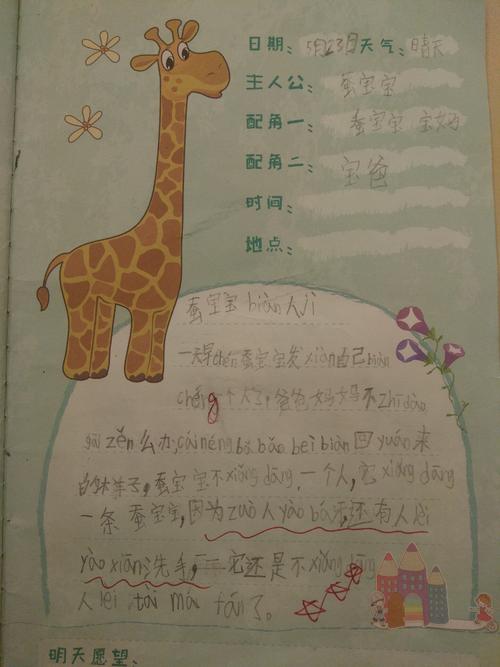 日期： 5月23日 天气： 晴天
主人公： 蚕宝宝
配角一： 蚕宝宝 宝妈
配角二： 宝爸
时间：
地点：
蚕宝宝 biàn 人 jì
一天早chén 蚕宝宝发xiàn自己biàn
chéng个人了，爸爸妈妈不zhī dào
gāi zěn 么办，cái néng bǎ bǎo bei biàn 回 yuán 来
的样子，蚕宝宝不xiǎng dāng 一个人，它 xiǎng dāng
一条 蚕宝宝，因为zuò人yào bá牙，还有人lèi
yào xiān 洗手，它还是不xiǎng dāng
人 lèi，tài má fán 了。
明天愿望、